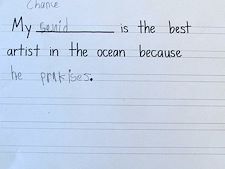 Chance
My squid is the best
artist in the ocean because
he prakises.